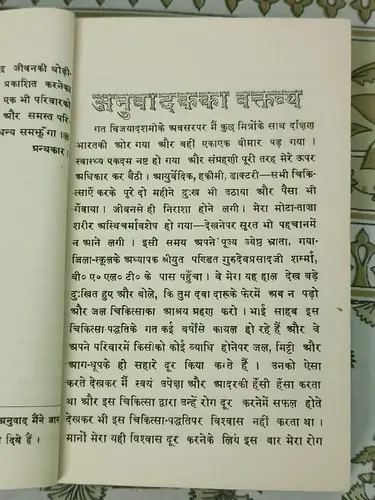 द्र जीवनकी थोड़ी-
प्रकाशित करनेका
एक भी परिवारको
और समस्त परि-
धन्य समझूँगा।
ग्रन्थकार।
अनुवाद मैंने
दिये हैं।
अनुवादकका वक्तव्य
गत विजयादशमीके अवसरपर मैं कुछ मित्रोंके साथ दक्षिण
भारतकी ओर गया और वहीं एकाएक बीमार पड़ गया।
स्वास्थ्य एकदम नष्ट हो गया और संग्रहणी पूरी तरह मेरे ऊपर
अधिकार कर बैठी। आयुर्वेदिक, हकीमी, डाक्टरी—सभी चिकि-
त्साएँ करके पूरे दो महीने दुःख भी उठाया और पैसा भी
गँवाया। जीवनसे ही निराशा होने लगी। मेरा मोटा-ताज़ा
शरीर अस्थिचर्मावशेष हो गया—देखनेपर सूरत भी पहचानमें
न आने लगी। इसी समय अपने पूज्य ज्येष्ठ भ्राता, गया-
जिला-स्कूलके अध्यापक श्रीयुत पण्डित गुरुदेवप्रसादजी शर्म्मा,
बी० ए० एल० टी० के पास पहुँचा। वे मेरा यह हाल देख बड़े
दुःखित हुए और बोले, कि तुम दवा दारूके फेरमें अब न पड़ो
और जल चिकित्साका आश्रय ग्रहण करो। भाई साहब इस
चिकित्सा-पद्धतिके गत कई वर्षोंसे कायल हो रहे हैं और वे
अपने परिवारमें किसीको कोई व्याधि होनेपर जल, मिट्टी और
आग-धूपके ही सहारे दूर किया करते हैं। उनको ऐसा
करते देखकर मैं स्वयं उपेक्षा और आदरकी हँसी हँसा करता
था और इस चिकित्सा द्वारा उन्हें रोग दूर करनेमें सफल होते
देखकर भी इस चिकित्सा-पद्धतिपर विश्वास नहीं करता था।
मानों मेरा यही विश्वास दूर करनेके लिये इस बार मेरा रोग